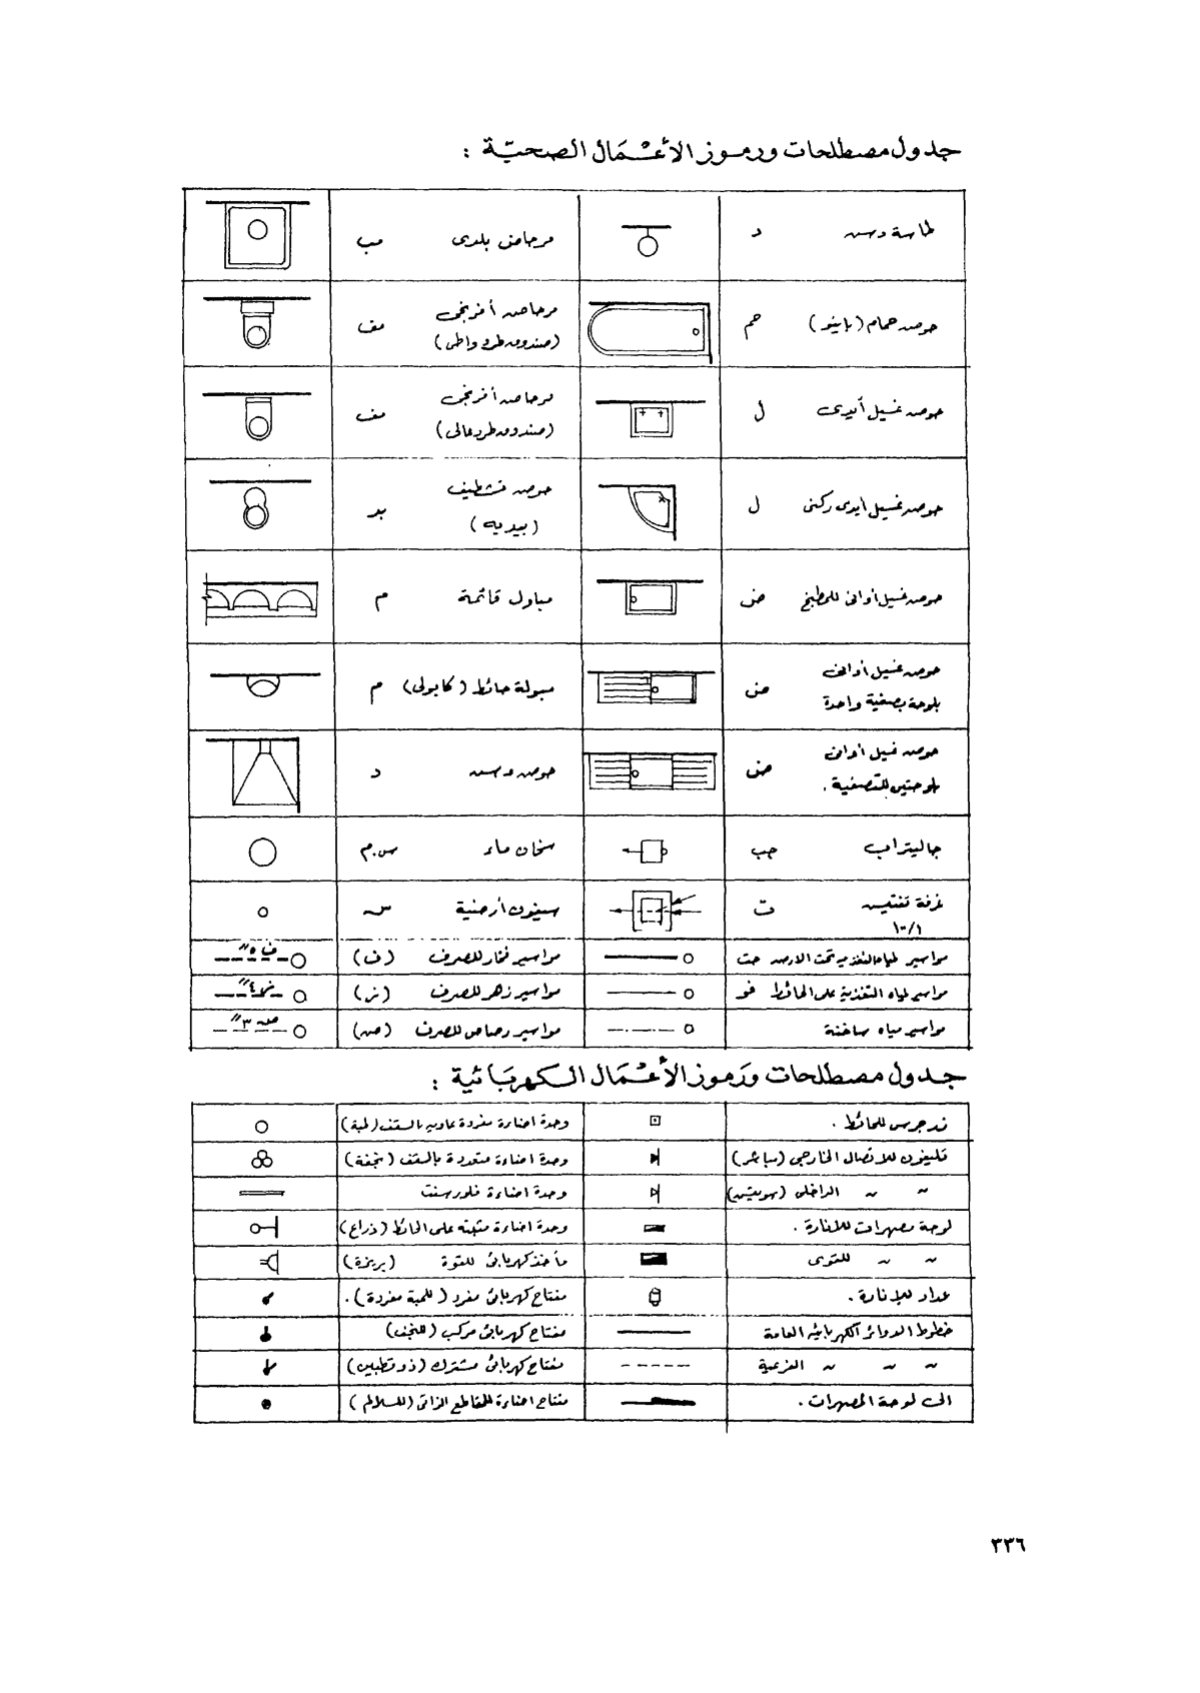 جدول مصطلحات ورموز الأعمال الصحية :
طاسة دس د
مرحاض بلدى مب
حوض حمام (بانيو) حم
مرحاض أفرنجى مف
(صندوق طرد واطى)
حوض غسيل أيدى ل
مرحاض أفرنجى مف
(صندوق طرد عالى)
حوض غسيل أيدى ركنى ل
حوض تشطيف بد
(بيديه)
حوض غسيل أوانى للمطبخ ض
مباول قائمة م
حوض غسيل أوانى ض
بلوحة تصفية واحدة
مبولة حائط (كابولى) م
حوض غسيل أوانى ض
بلوحتين للتصفية .
حوض دس د
جاليتراب جب
سخان ماء س.م
غرفة تفتيش ت
سيفون أرضية س
مواسير لمياه التغذية تحت الارض حت
مواسير فخار للصرف (ف)
ف ٥"
مواسير لمياه التغذية على الحائط فو
مواسير زهر للصرف (ز)
ز ٤"
مواسير مياه ساخنة
مواسير رصاص للصرف (ص)
ص ٣"
جدول مصطلحات ورموز الأعمال الكهربائية :
زر جرس للحائط .
وحدة اضاءة مفردة عادية بالسقف (لمبة)
تليفون للاتصال الخارجى (مباشر)
وحدة اضاءة متعددة بالسقف (نجفة)
〃 〃 الداخلى (سويتش)
وحدة اضاءة فلورسنت
لوحة مصهرات للانارة .
وحدة اضاءة مثبته على الحائط (ذراع)
〃 〃 للقوى
مأخذ كهربائى للقوة (بريزة)
عداد للإنارة .
مفتاح كهربائى مفرد (للمبة مفردة) .
خطوط الدوائر الكهربائية العامة
مفتاح كهربائى مركب (للنجف)
〃 〃 〃 الفرعية
مفتاح كهربائى مشترك (ذو قطبين)
الى لوحة المصهرات .
مفتاح اضاءة للقاطع الذاتى (للسلالم)
٣٣٦